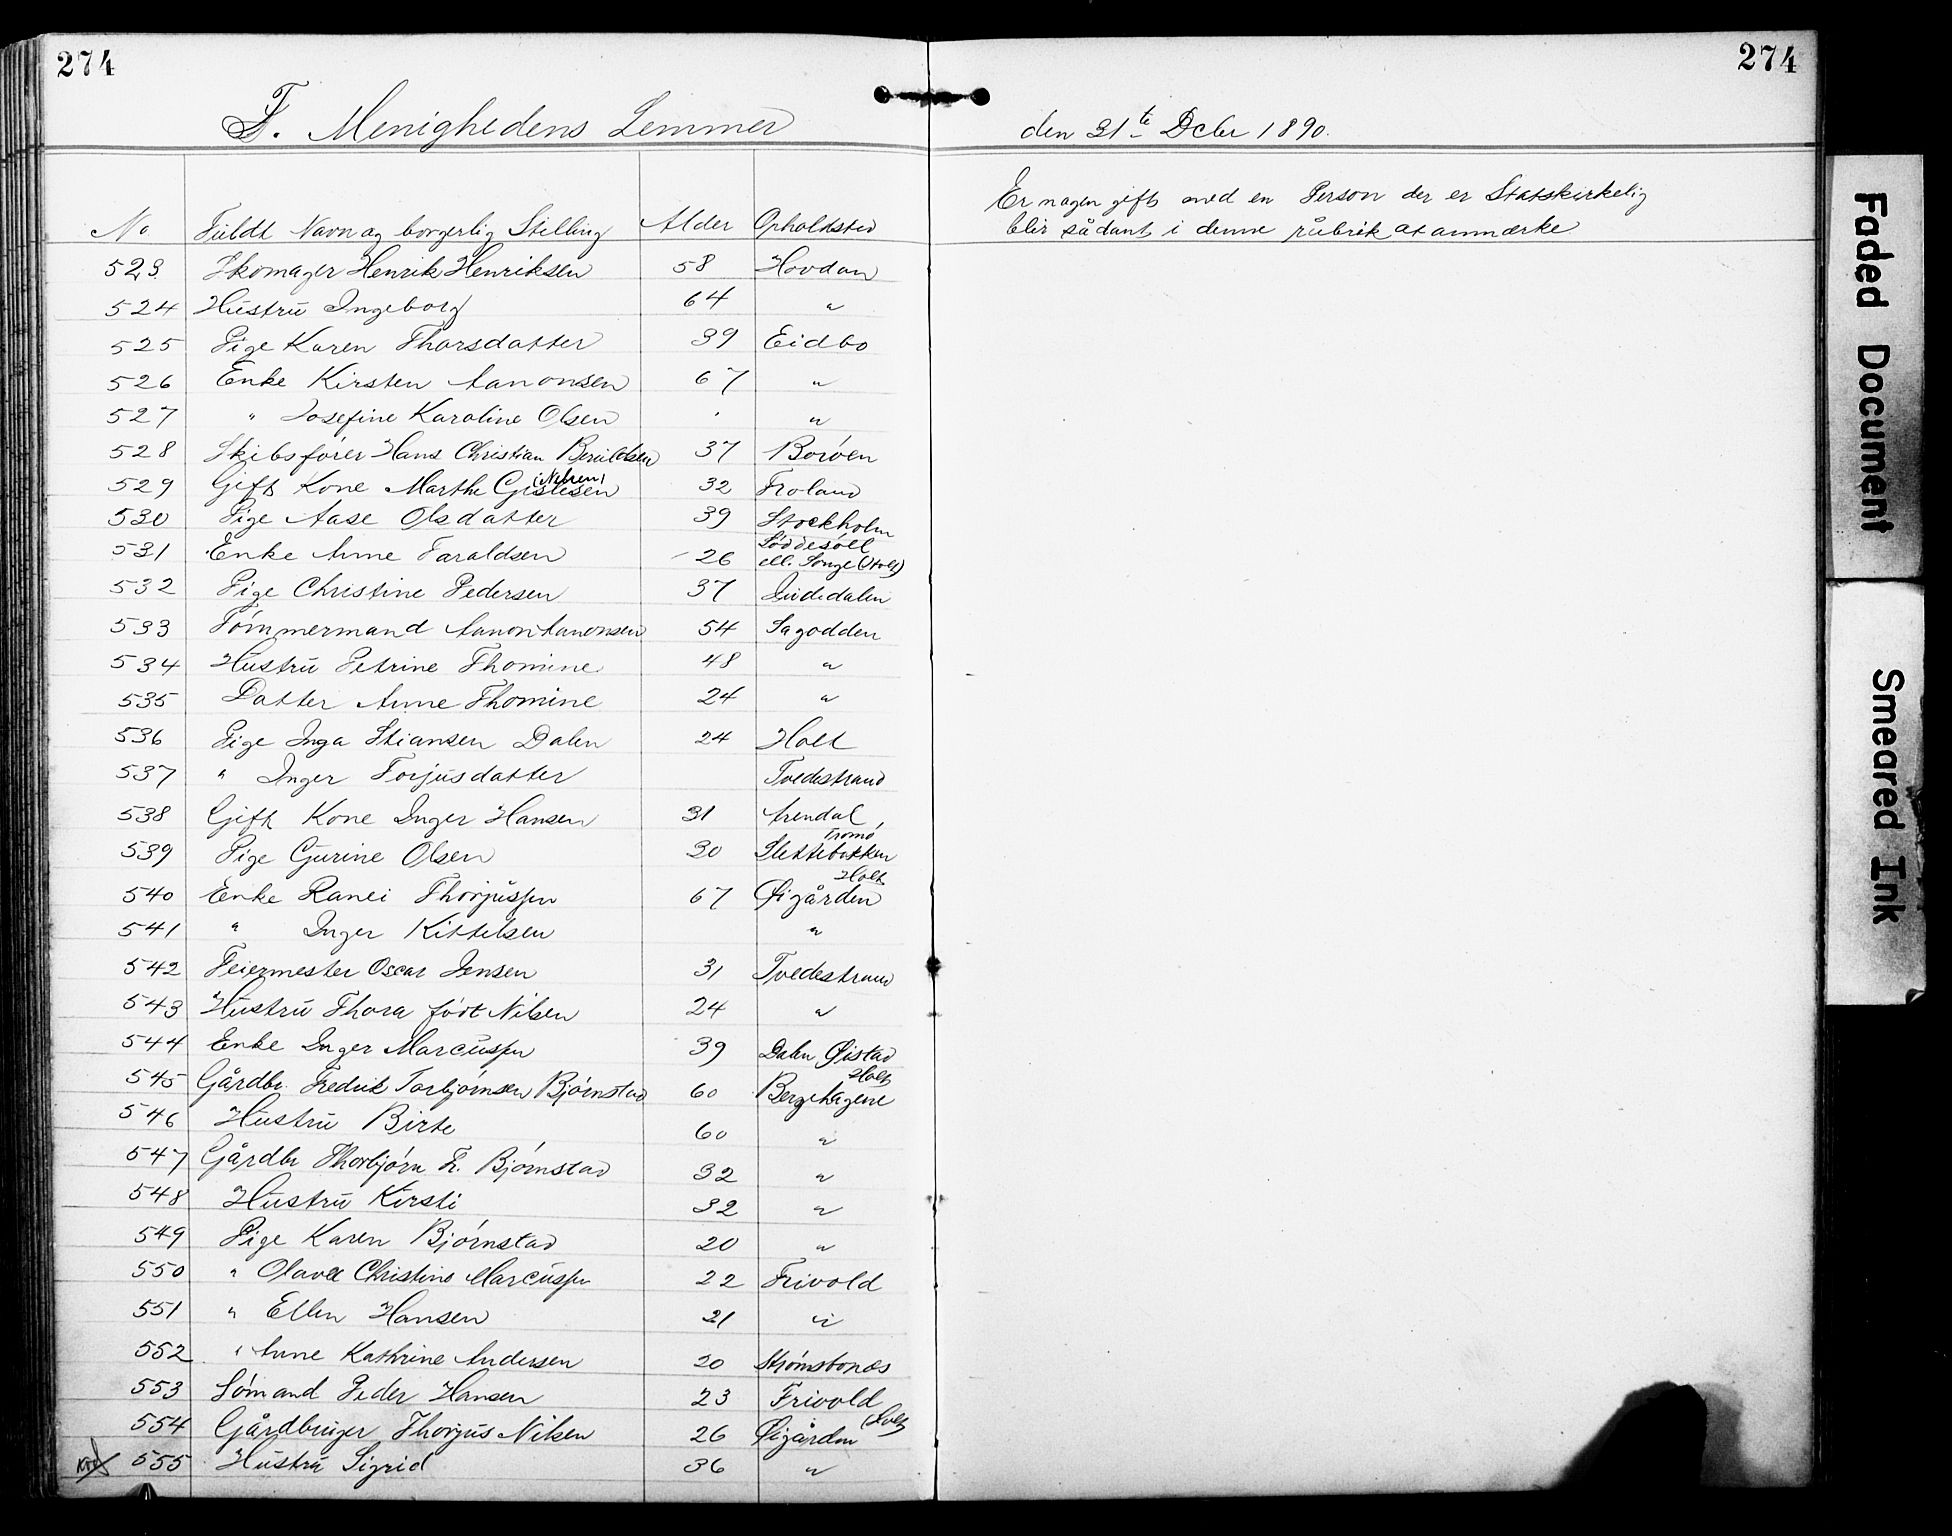 274
274
F. Menighedens Lemmer
den 31te Dcbr 1890.
Er nogen gift med en Person der er Statskirkelig
blir sådant i denne rubrik at anmærke
No Fuldt Navn og borgerlig Stilling Alder Opholdsted
523 Skomager Henrik Henriksen 58 Hovdan
524 Hustru Ingeborg 64 "
525 Pige Karen Tharsdatter 39 Eidbo
526 Enke Kirsten Aanonsen 67 "
527 " Josefine Karoline Olsen "
528 Skibsfører Hans Christian Beruldsen 37 Borøen
529 Gift Kone Marthe Gislesen (Nilsen) 32 Froland
530 Pige Aase Olsdatter 39 Stockholm
531 Enke Anne Taraldsen 26 Søddesøll
ell. Songe (Holt)
532 Pige Christine Pedersen 37 Dudedalen
533 Tømmermand Aanon Aanonsen 54 Sagodden
534 Hustru Petrine Thomine 48 "
535 Datter Anne Thomine 24 "
536 Pige Inga Stiansen Dalen 24 Holt
537 " Inger Torjusdatter Tvedestrand
538 Gift Kone Inger Hansen 31 Arendal
539 Pige Gurine Olsen 30 Slettebakken Tromø
540 Enke Ranei Thorjussen 67 Øigården Holt
541 " Inger Kittelsen "
542 Feiermester Oscar Jensen 31 Tvedestrand
543 Hustru Thora født Nilsen 24 "
544 Enke Inger Marcussen 39 Dalen Øistad
545 Gårdbr. Fredrik Torbjørnsen Bjørnstad 60 Bergehagene Holt
546 Hustru Birte 60 "
547 Gårdbr Thorbjørn F. Bjørnstad 32 "
548 Hustru Kirsti 32 "
549 Pige Karen Bjørnstad 20 "
550 " Olava Christine Marcussen 22 Frivold
551 " Ellen Hansen 21 "
552 " Anne Kathrine Andersen 20 Strømsbonæs
553 Sømand Peder Hansen 23 Frivold
554 Gårdbruger Thorjus Nilsen 26 Øigården (Holt)
555 Hustru Sigrid 36 "
Faded Document
Smeared Ink